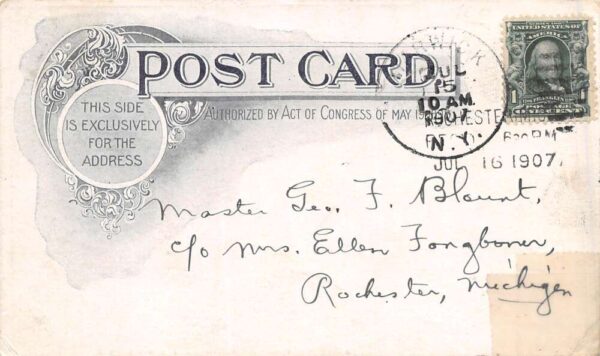 POST CARD.
THIS SIDE
IS EXCLUSIVELY
FOR THE
ADDRESS
AUTHORIZED BY ACT OF CONGRESS OF MAY
JUL
15
10 AM
1907
N.Y.
JUL 16 1907
UNITED STATES OF
AMERICA
FRANKLIN
1 1
Master Geo. F. Blount,
c/o Mrs. Ellen Fongboner,
Rochester, Michigen